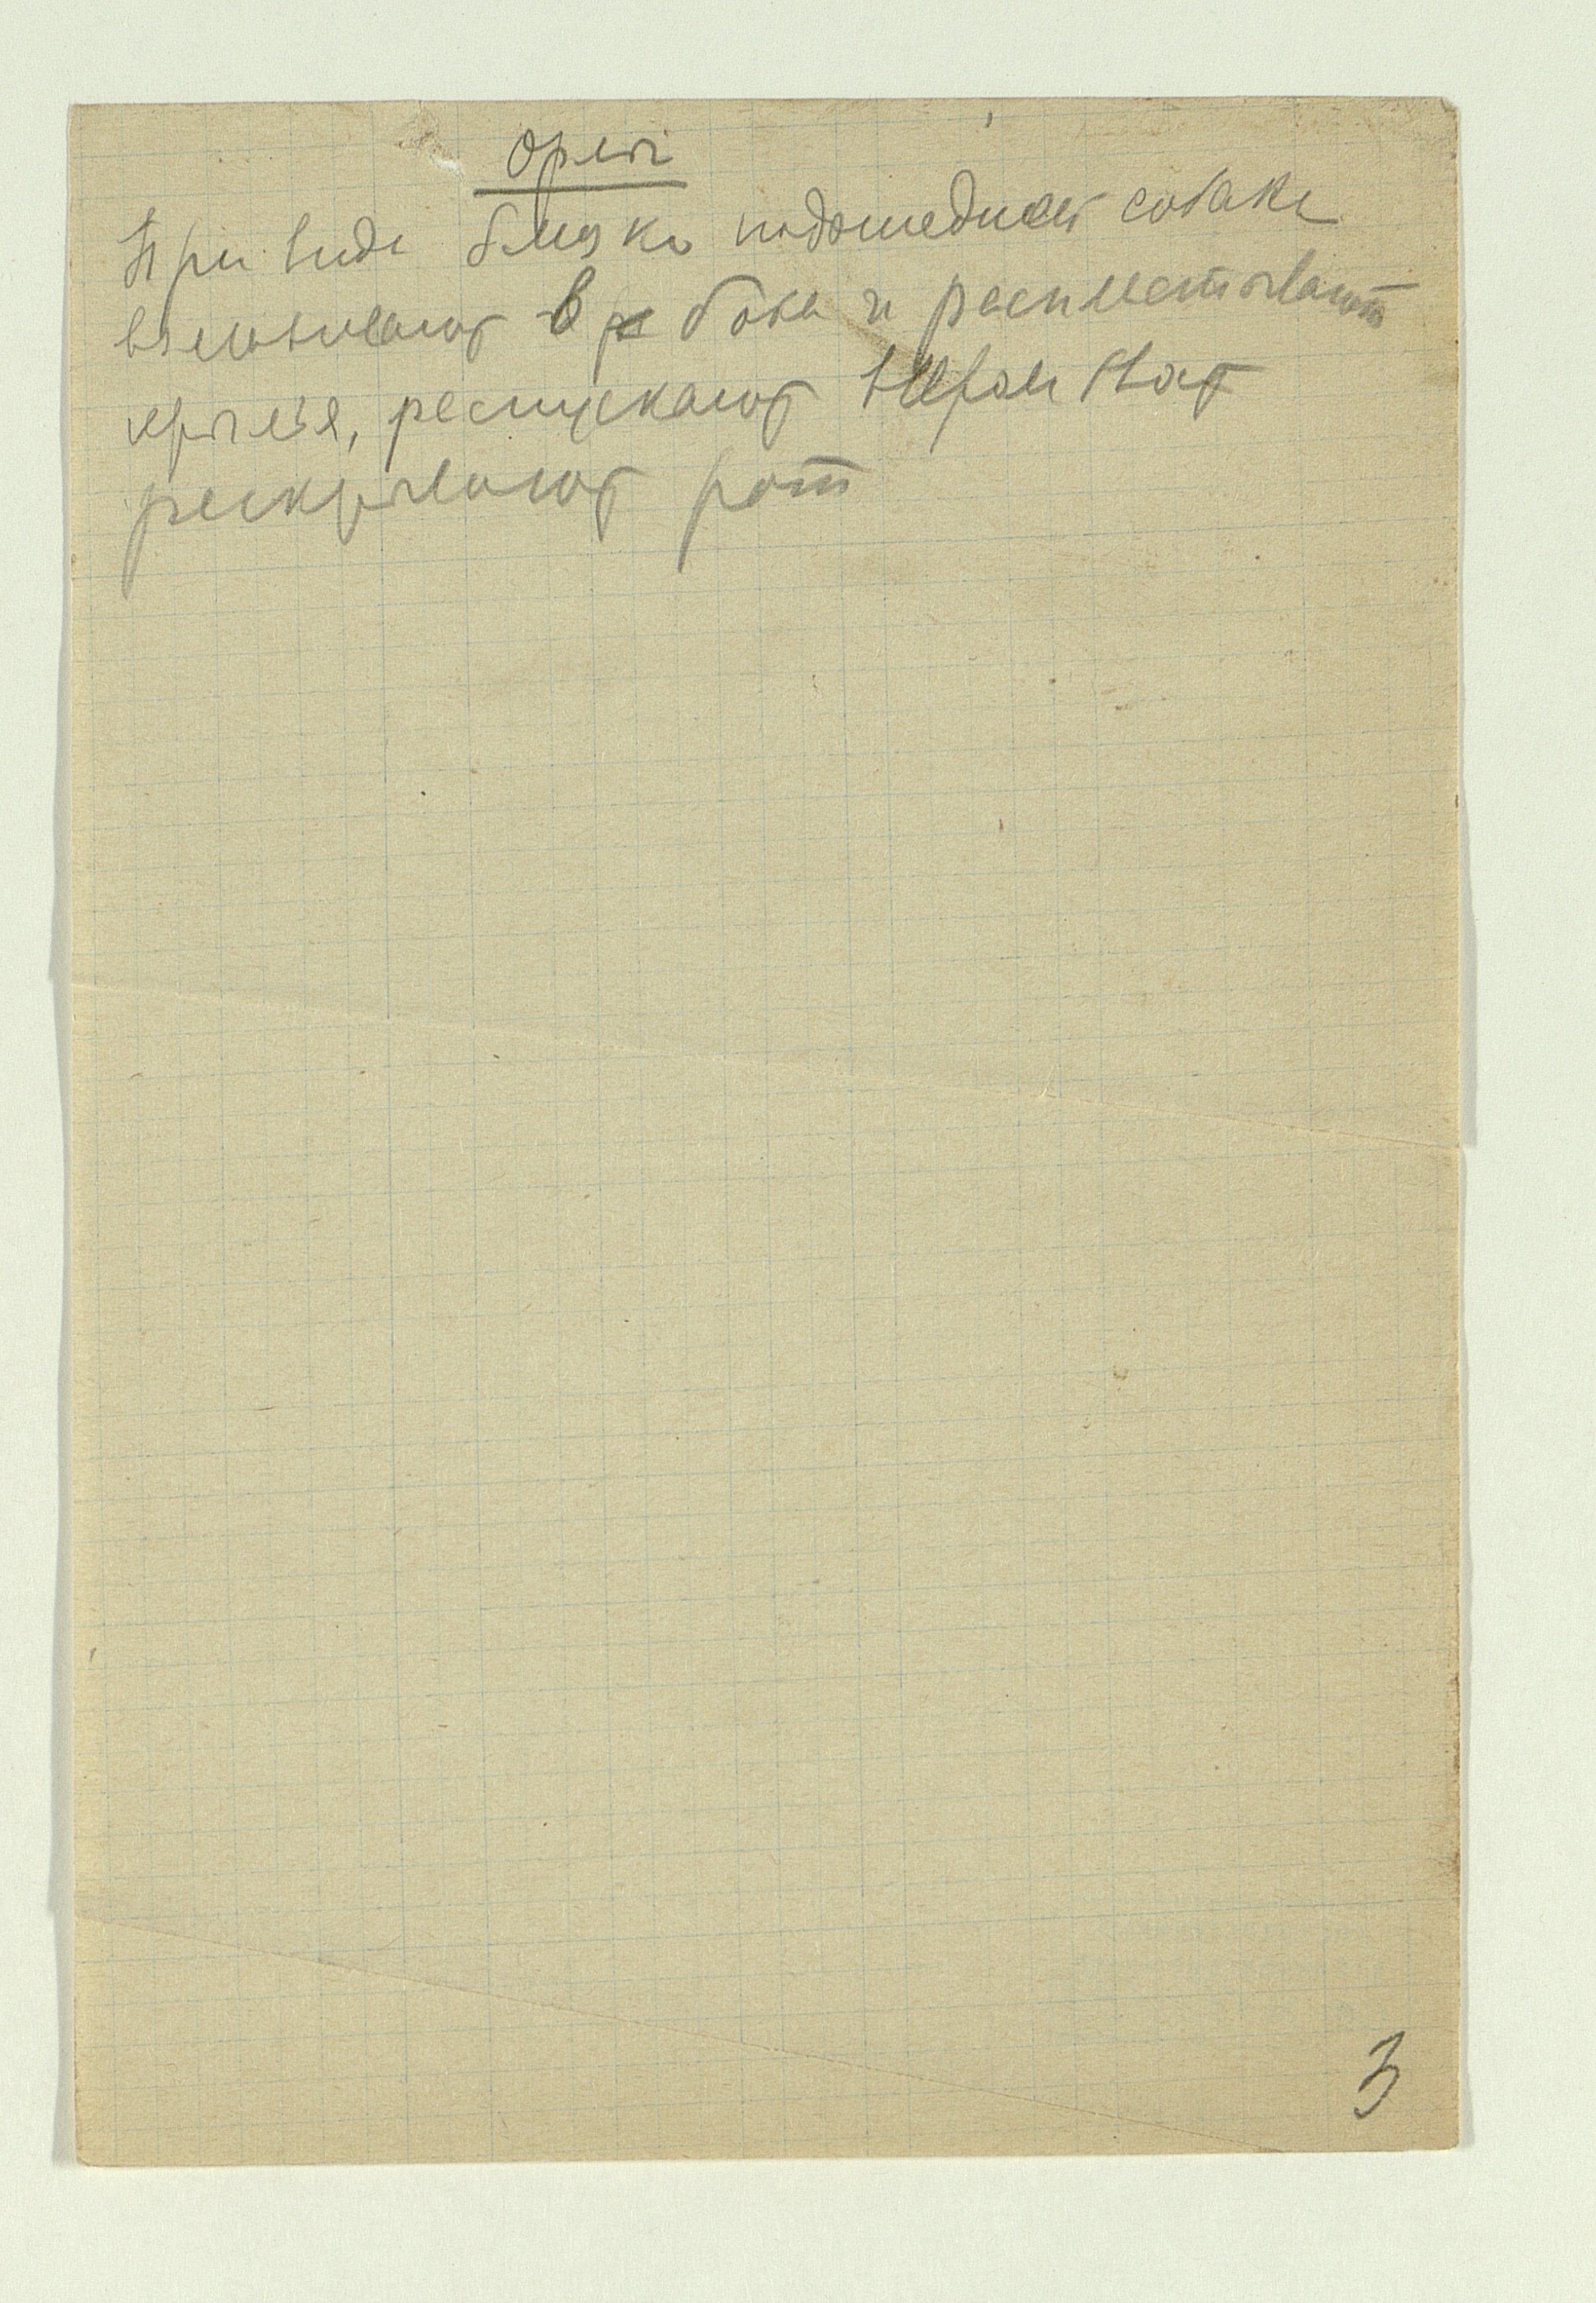 Орлы
При виде близко подошедшей собаки
взъ в бока и распластывают
крылья, распускают веером хвост
раскрывают рот
3